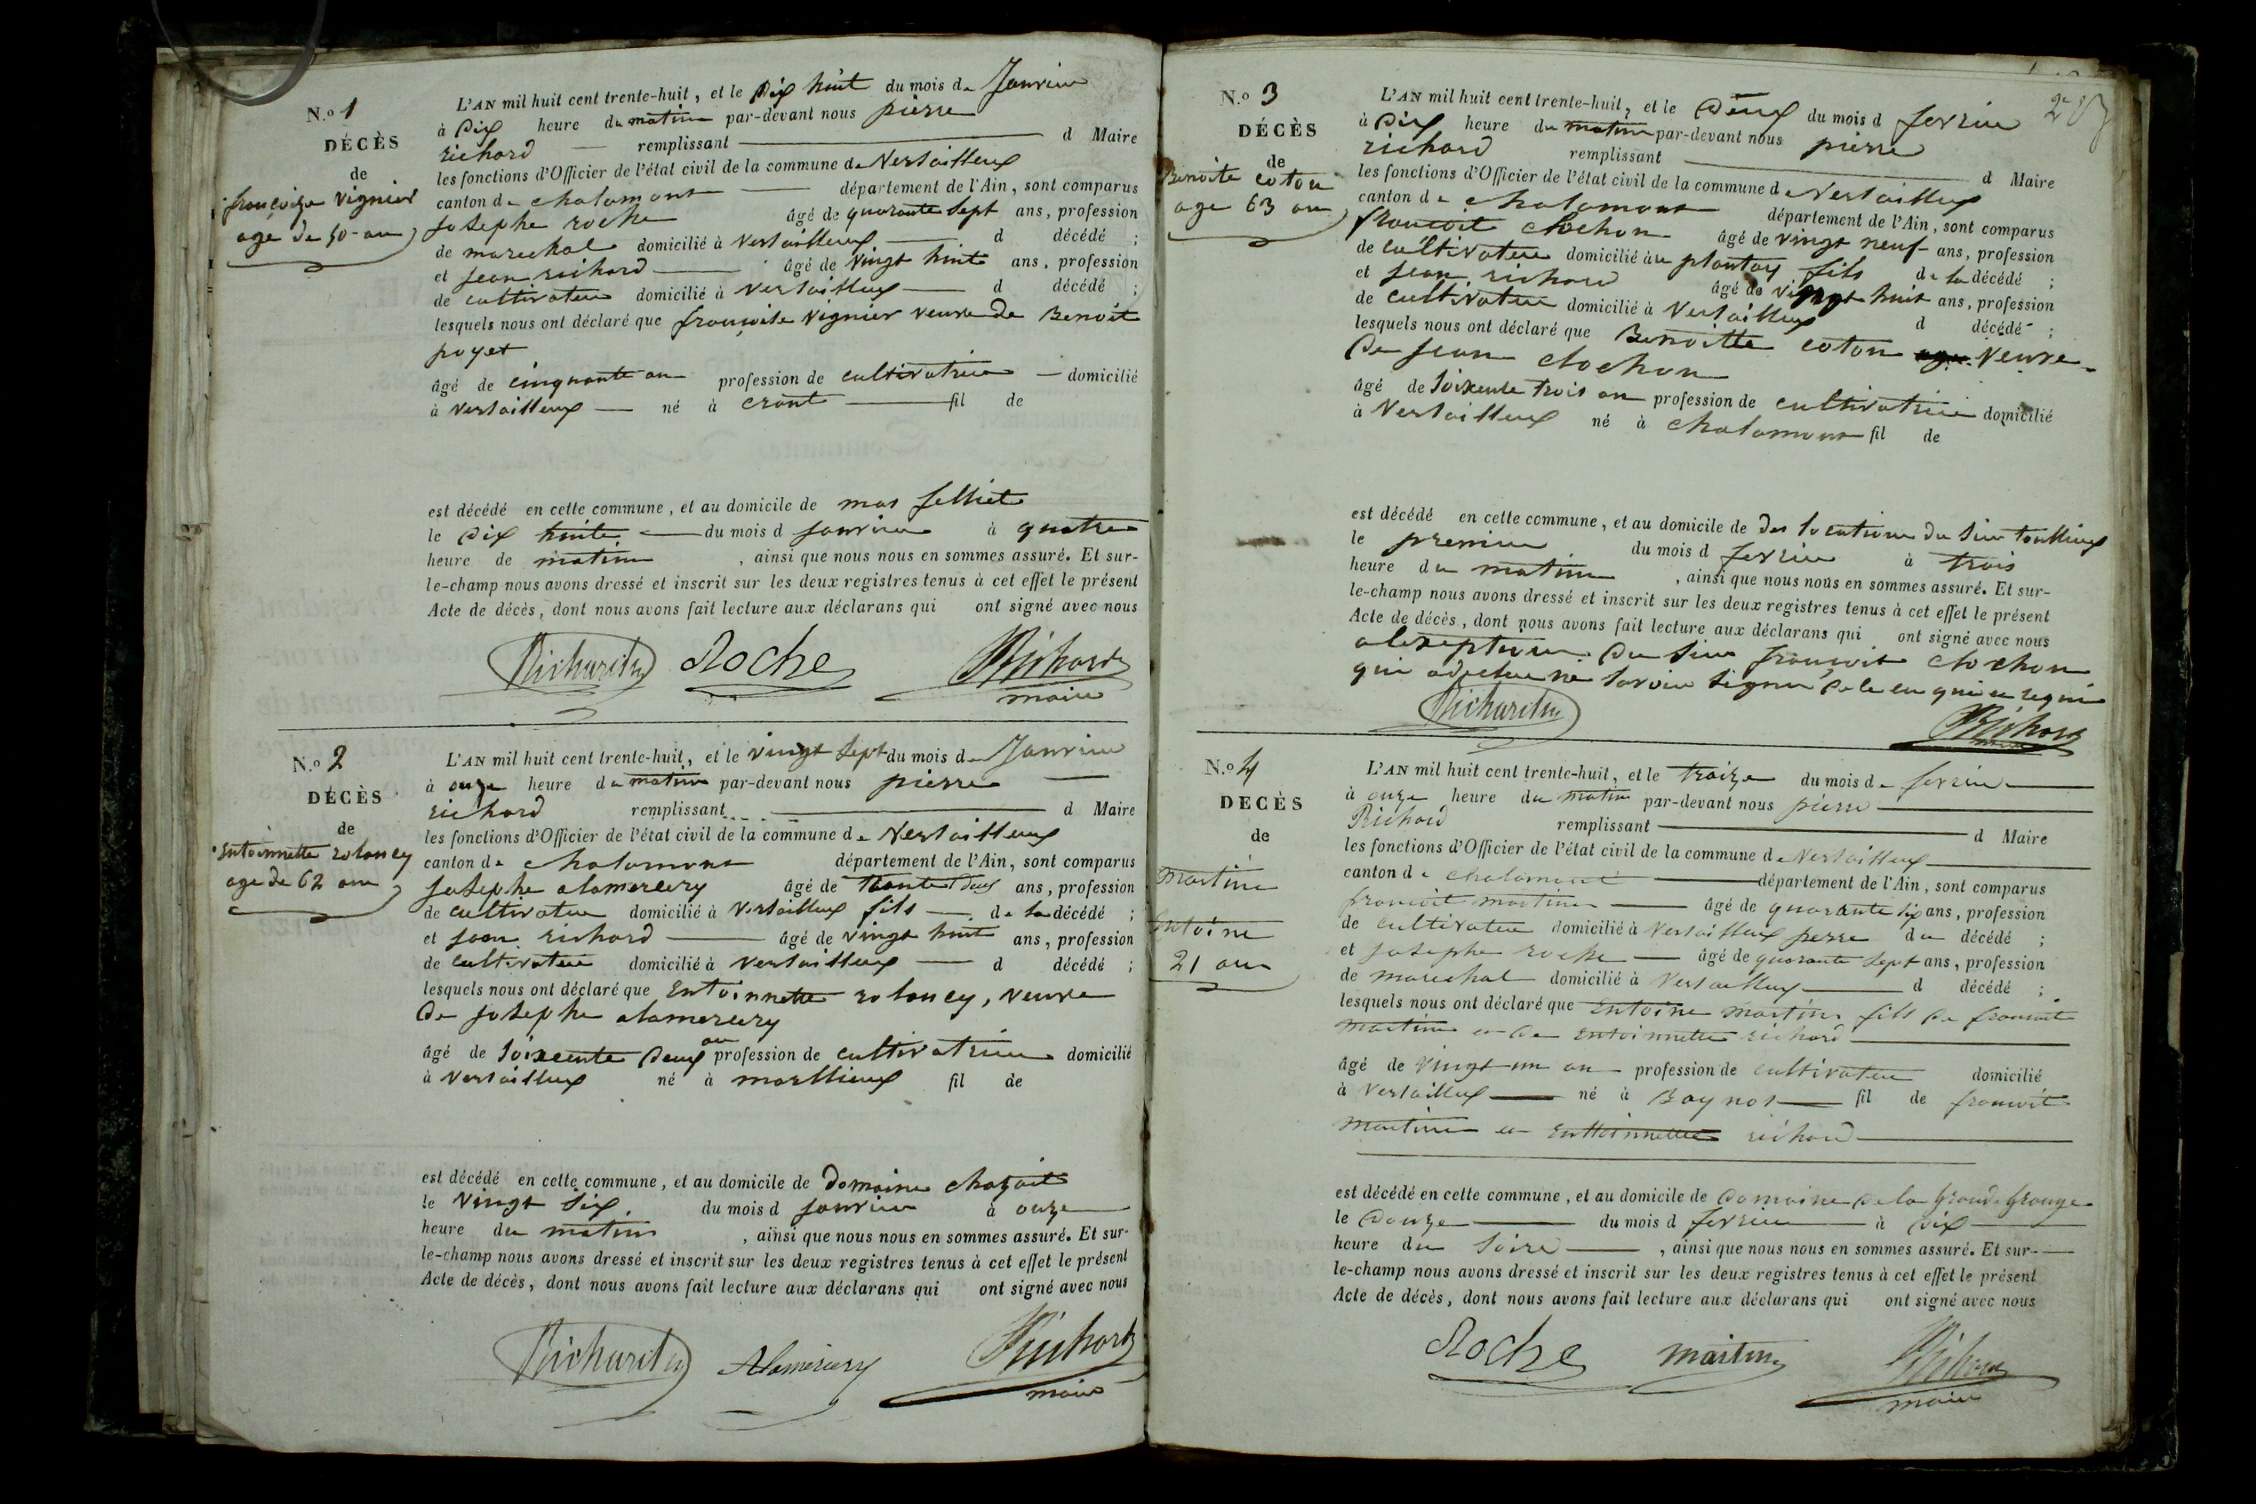 N.o 1
DÉCÈS
de
françoise vignier
age de 50 an
L'AN mil huit cent trente-huit, et le dix huit du mois de Janvier
à dix heure du matin par-devant nous pierre
richard remplissant d Maire
les fonctions d'Officier de l'état civil de la commune de Versailleux
canton de chalamont département de l'Ain, sont comparus
Josephe roche âgé de quarante sept ans, profession
de marechal domicilié à Versailleux d décédé ;
et jean richard âgé de vingt huit ans, profession
de cultivateur domicilié à Versailleux d décédé ;
lesquels nous ont déclaré que françoise vignier veuve de Benoit
poyet
âgé de cinquante an profession de cultivatrice domicilié
à Versailleux né à crant fil de
est décédé en cette commune, et au domicile de mas felliet
le dix huite du mois d janvier à quatre
heure de matin, ainsi que nous nous en sommes assuré. Et sur-
le-champ nous avons dressé et inscrit sur les deux registres tenus à cet effet le présent
Acte de décès, dont nous avons fait lecture aux déclarans qui ont signé avec nous
Richard Roche Richard
maire
N.o 2
DÉCÈS
de
Entoinnette rolancy
age de 62 ans
L'AN mil huit cent trente-huit, et le vingt sept du mois de Janvier
à onze heure du matin par-devant nous pierre
richard remplissant d Maire
les fonctions d'Officier de l'état civil de la commune de Versailleux
canton de chalamont département de l'Ain, sont comparus
Josephe alamercery âgé de trante deux ans, profession
de cultivateur domicilié à Versailleux fils de la décédé ;
et jean richard âgé de vingt huit ans, profession
de cultivateur domicilié à Versailleux d décédé ;
lesquels nous ont déclaré que Entoinnette rolancy, veuve
De josephe alamercery
âgé de soixente deux an profession de cultivatrice domicilié
à Versailleux né à marllieux fil de
est décédé en cette commune, et au domicile de Domaine chazait
le vingt six du mois d janvier à onze
heure du matin, ainsi que nous nous en sommes assuré. Et sur-
le-champ nous avons dressé et inscrit sur les deux registres tenus à cet effet le présent
Acte de décès, dont nous avons fait lecture aux déclarans qui ont signé avec nous
Richard Alamercery Richard
maire
N.o 3
DÉCÈS
de
Benoite coton
age 63 an
L'AN mil huit cent trente-huit, et le Deux du mois d fevrier
à dix heure du matin par-devant nous pierre
richard remplissant d Maire
les fonctions d'Officier de l'état civil de la commune de Versailleux
canton de chalamont département de l'Ain, sont comparus
francoit clochon âgé de vingt neuf ans, profession
de cultivateur domicilié àu plantay fils de la décédé ;
et jean richard âgé de vingt huit ans, profession
de cultivateur domicilié à Versailleux d décédé ;
lesquels nous ont déclaré que Benoitte coton veuve
De jean clochon
âgé de soixente trois an profession de cultivatrice domicilié
à Versailleux né à chalamont fil de
est décédé en cette commune, et au domicile de des locations du sieur
le premier du mois d fevrier à trois
heure du matin, ainsi que nous nous en sommes assuré. Et sur-
le-champ nous avons dressé et inscrit sur les deux registres tenus à cet effet le présent
Acte de décès, dont nous avons fait lecture aux déclarans qui ont signé avec nous
alexeption du sieur françoit clochon
qui adeclare ne savoir signer de ce enquis requi
Richard Richard
N.o 4
DECÈS
de
Martin
Entoine
21 ans
L'AN mil huit cent trente-huit, et le traize du mois de fevrier
à onze heure du matin par-devant nous pierre
Richard remplissant d Maire
les fonctions d'Officier de l'état civil de la commune de Versailleux
canton de chalamont département de l'Ain, sont comparus
francoit martin âgé de quarante six ans, profession
de cultivateur domicilié à Versailleux perre du décédé ;
et josephe roche âgé de quarante sept ans, profession
de marechal domicilié à Versailleux d décédé ;
lesquels nous ont déclaré que Entoine martin fils de francoit
martin et de entoinnette richard
âgé de vingt un an profession de cultivateur domicilié
à Versailleux né à Baynos fil de francoit
martin et enttoinnette richard
est décédé en cette commune, et au domicile de Domaine de la Grande Grange
le Douze du mois d fevrier à dix
heure du soire, ainsi que nous nous en sommes assuré. Et sur-
le-champ nous avons dressé et inscrit sur les deux registres tenus à cet effet le présent
Acte de décès, dont nous avons fait lecture aux déclarans qui ont signé avec nous
Roche martin Richard
maire